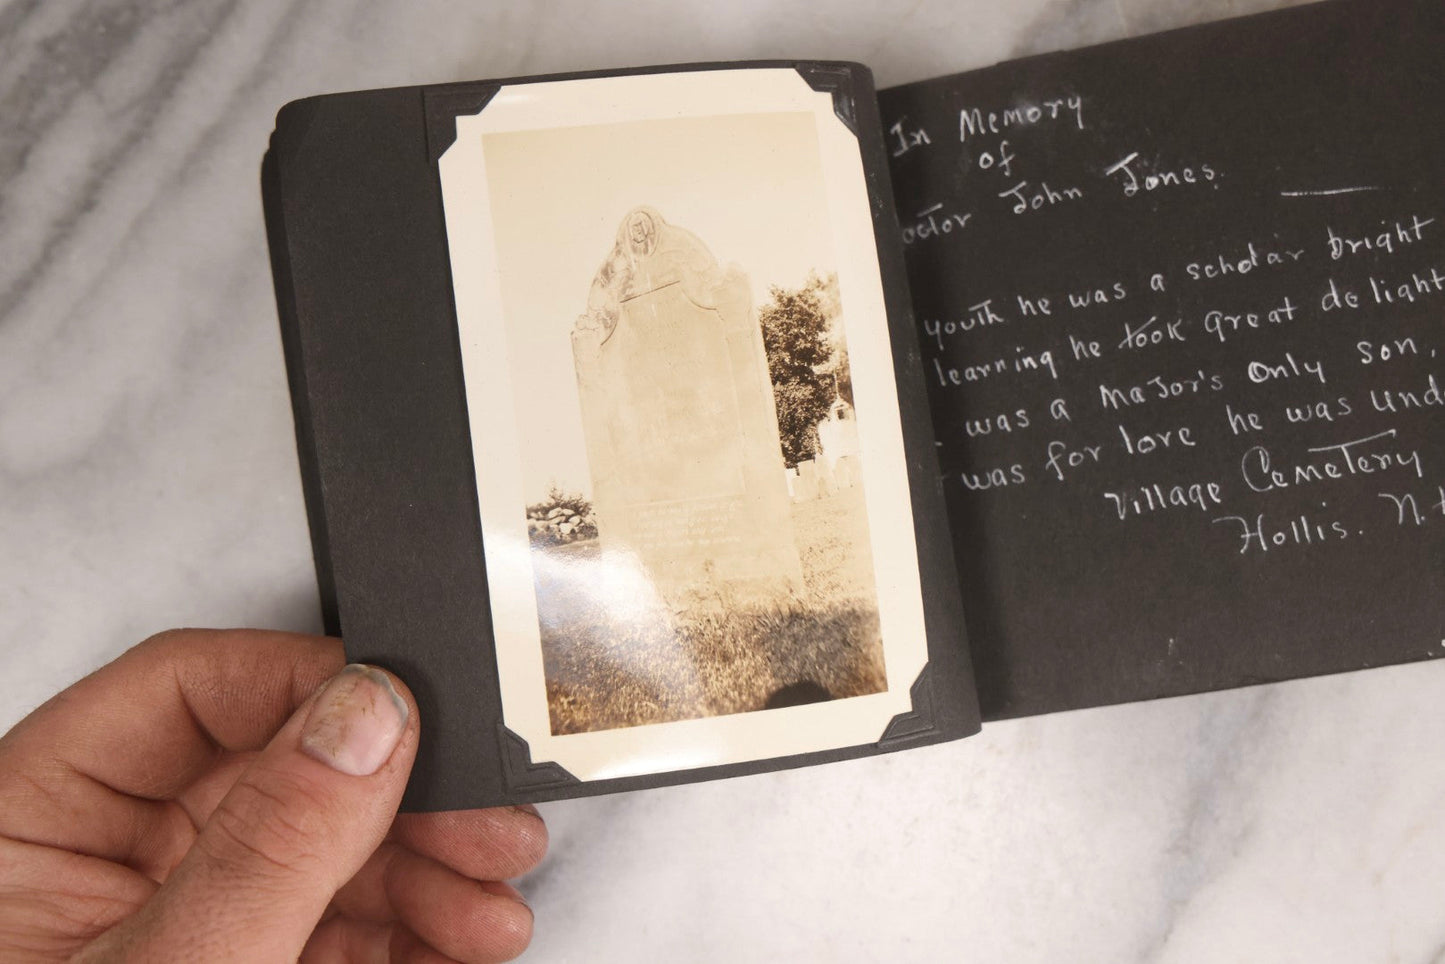 In Memory
of
octor John Jones.
youth he was a scholar bright
learning he took great delight
was a Major's Only son,
was for love he was und
Village Cemetery
Hollis. N.